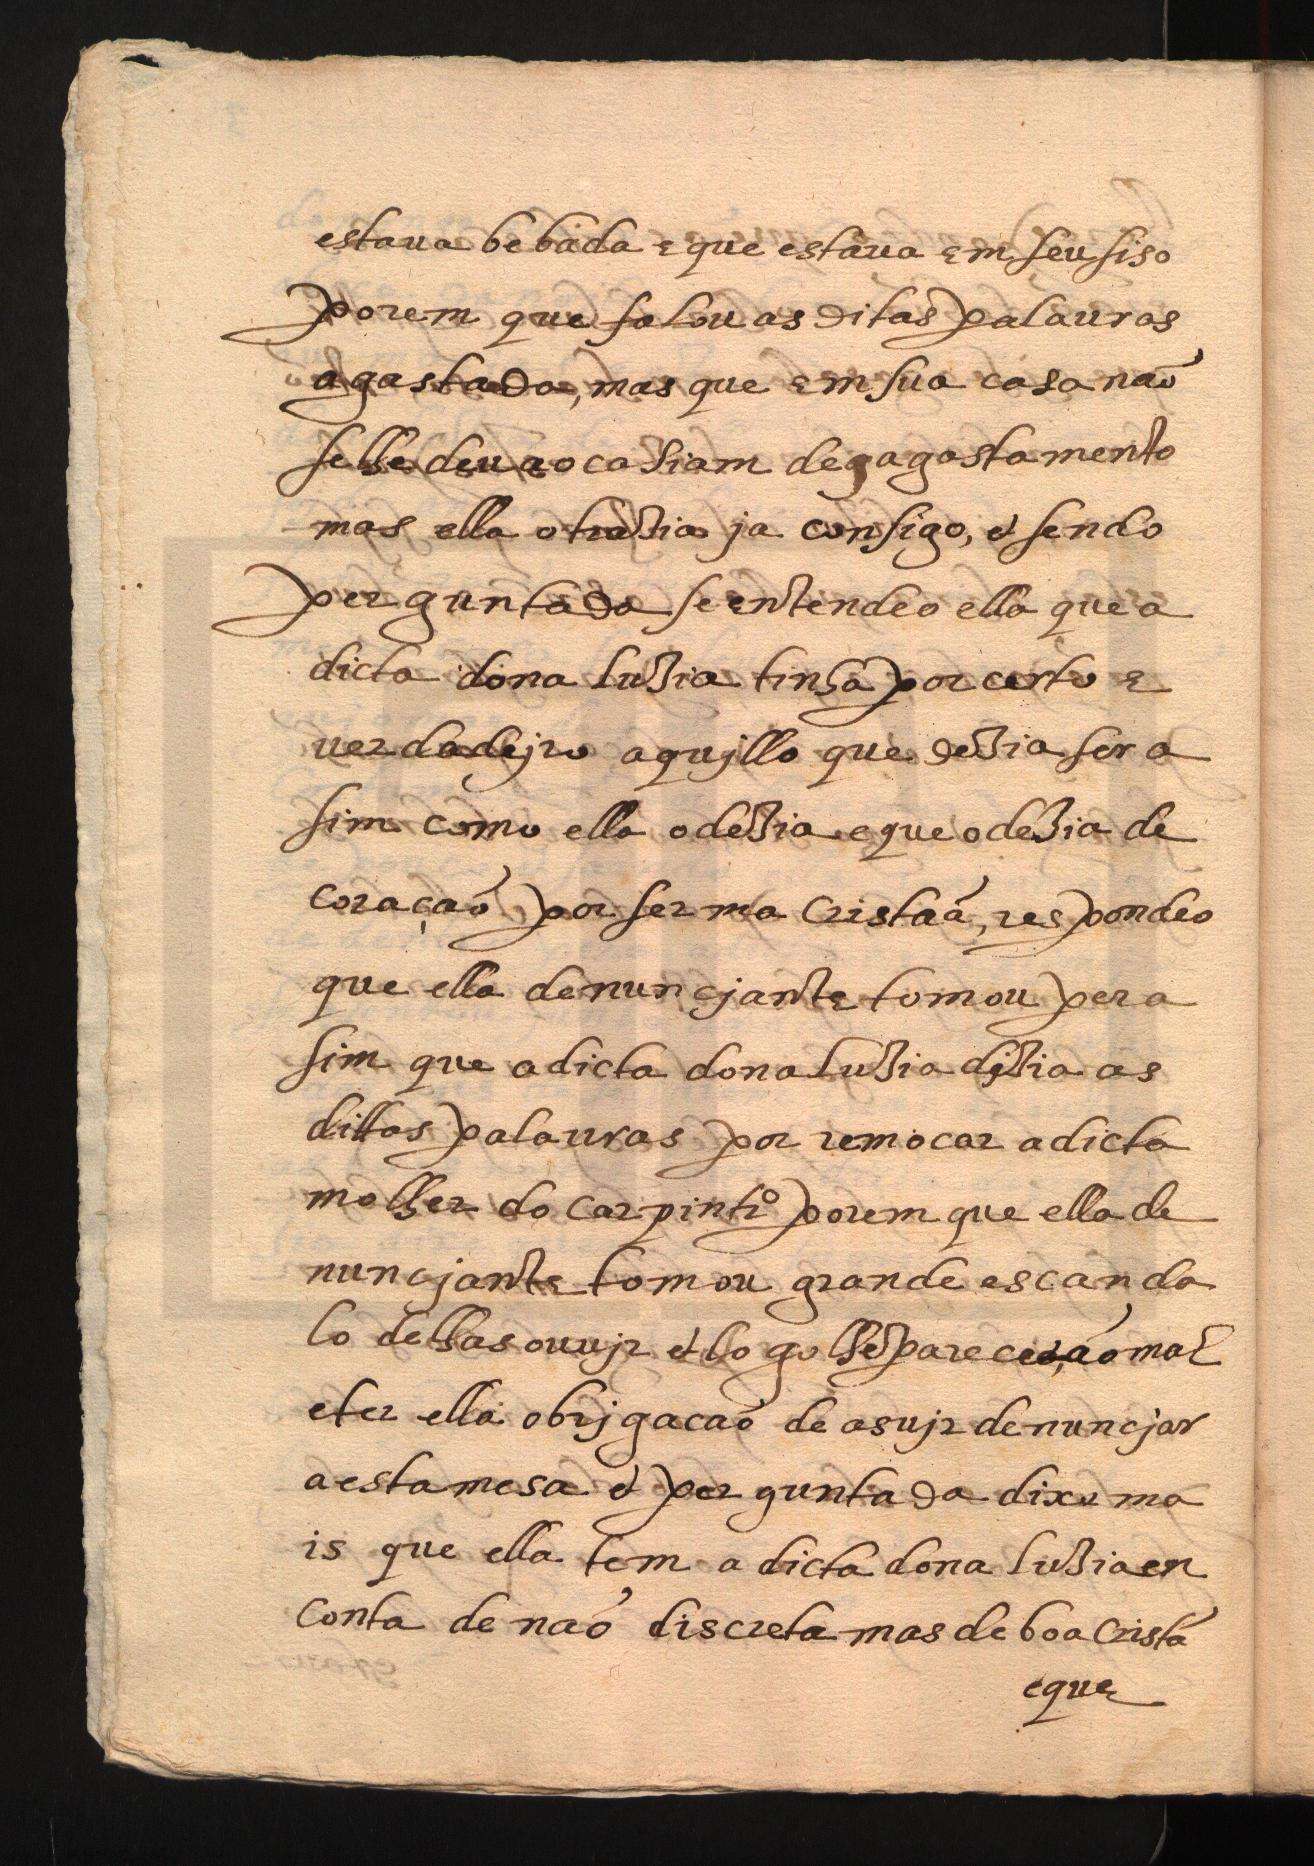 estaua bebada e que estaua em seu siso
porem que falou as ditas palauras
agastada, mas que em sua casa naõ
se lhe deu a ocasiam de agastamento
mas ella o trazia ja consigo, et sendo
perguntada se entendeo ella que a
dicta dona luzia tinha por certo e
verdadejro aqujllo que dezia ser a
sim como ella o dezia e que o dezia de
coraçaõ por ser ma cristaã, respondeo
que ella denuncjante tomou pera
sim que a dicta dona luzia dizia as
dittas palauras por remocar a dicta
molher do carpintrº porem que ella de
nuncjante tomou grande escanda
lo de lhas ouujr et logo lhe pareceo mal
e ter ella obrjgacaõ de as ujr denuncjar
a esta mesa et perguntada dixe ma
is que ella tem a dicta dona luzia en
conta de naõ discreta mas de boa cristã
e que